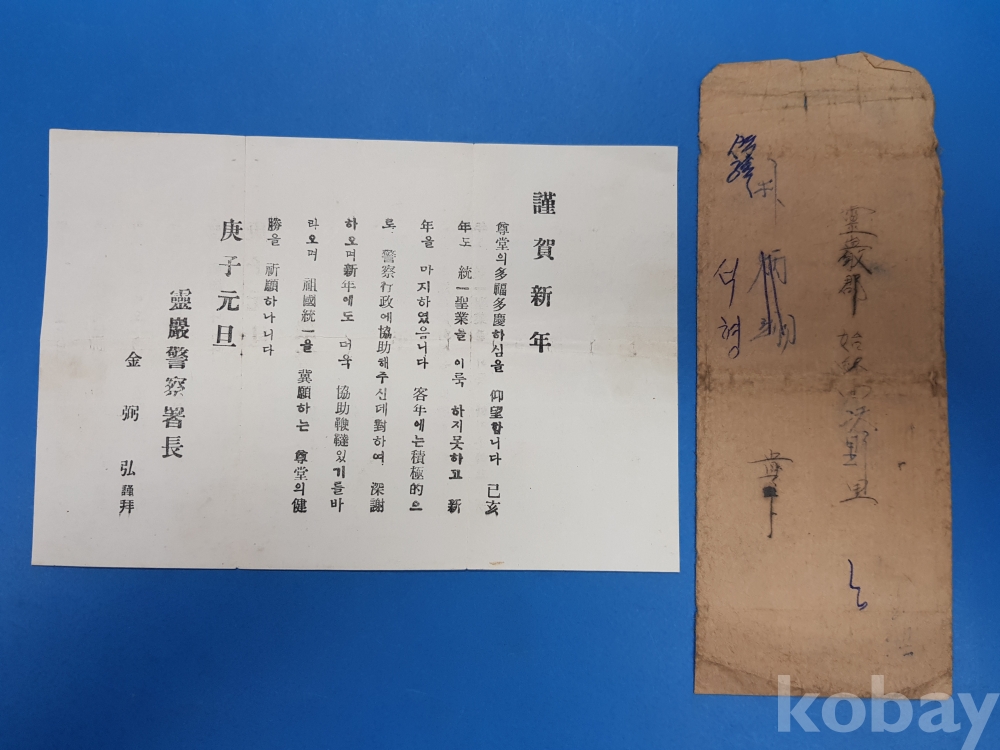 謹賀新年
尊堂의多福多慶하심을 仰望합니다 己亥
年도 統一聖業을 이룩 하지못하고 新
年을 마지하였음니다 客年에는積極的으
로 警察行政에協助해주신데對하여 深謝
하오며新年에도 더욱 協助鞭韃있기를바
라오며 祖國統一을 冀願하는 尊堂의健
勝을 祈願하나니다
庚子元旦
靈巖警察署長
金弼弘謹拜
靈巖郡 始終面
kobay